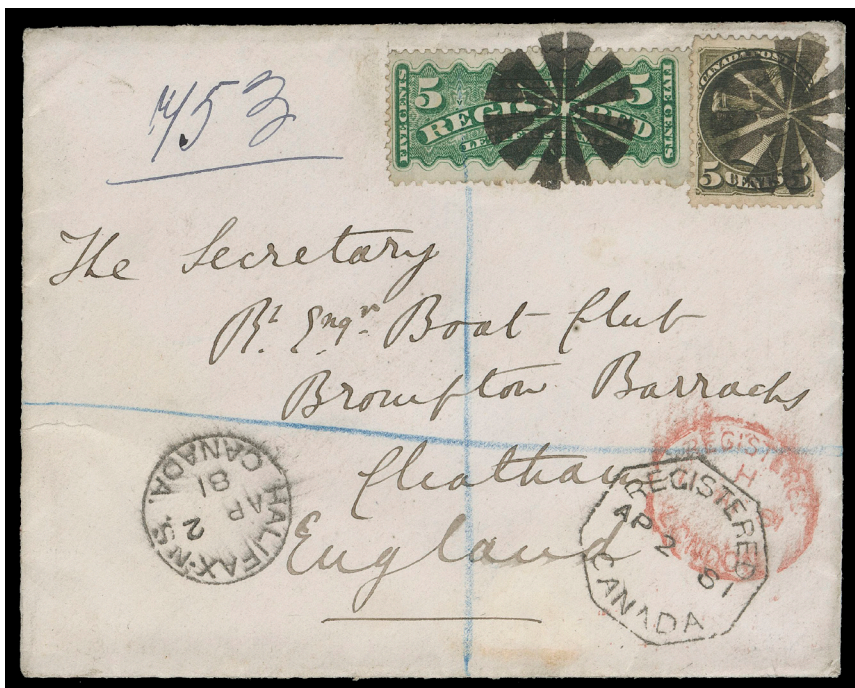 453
5 REGISTERED 5
FIVE CENTS
FIVE CENTS
LETTER
CANADA POSTAGE
5 CENTS 5
The Secretary
Rl. Engrs. Boat Club
Brompton Barracks
Chatham
England
HALIFAX·N.S.
2
AP
81
CANADA.
REGISTERED
AP 2 81
CANADA
REGISTERED
H
LONDON